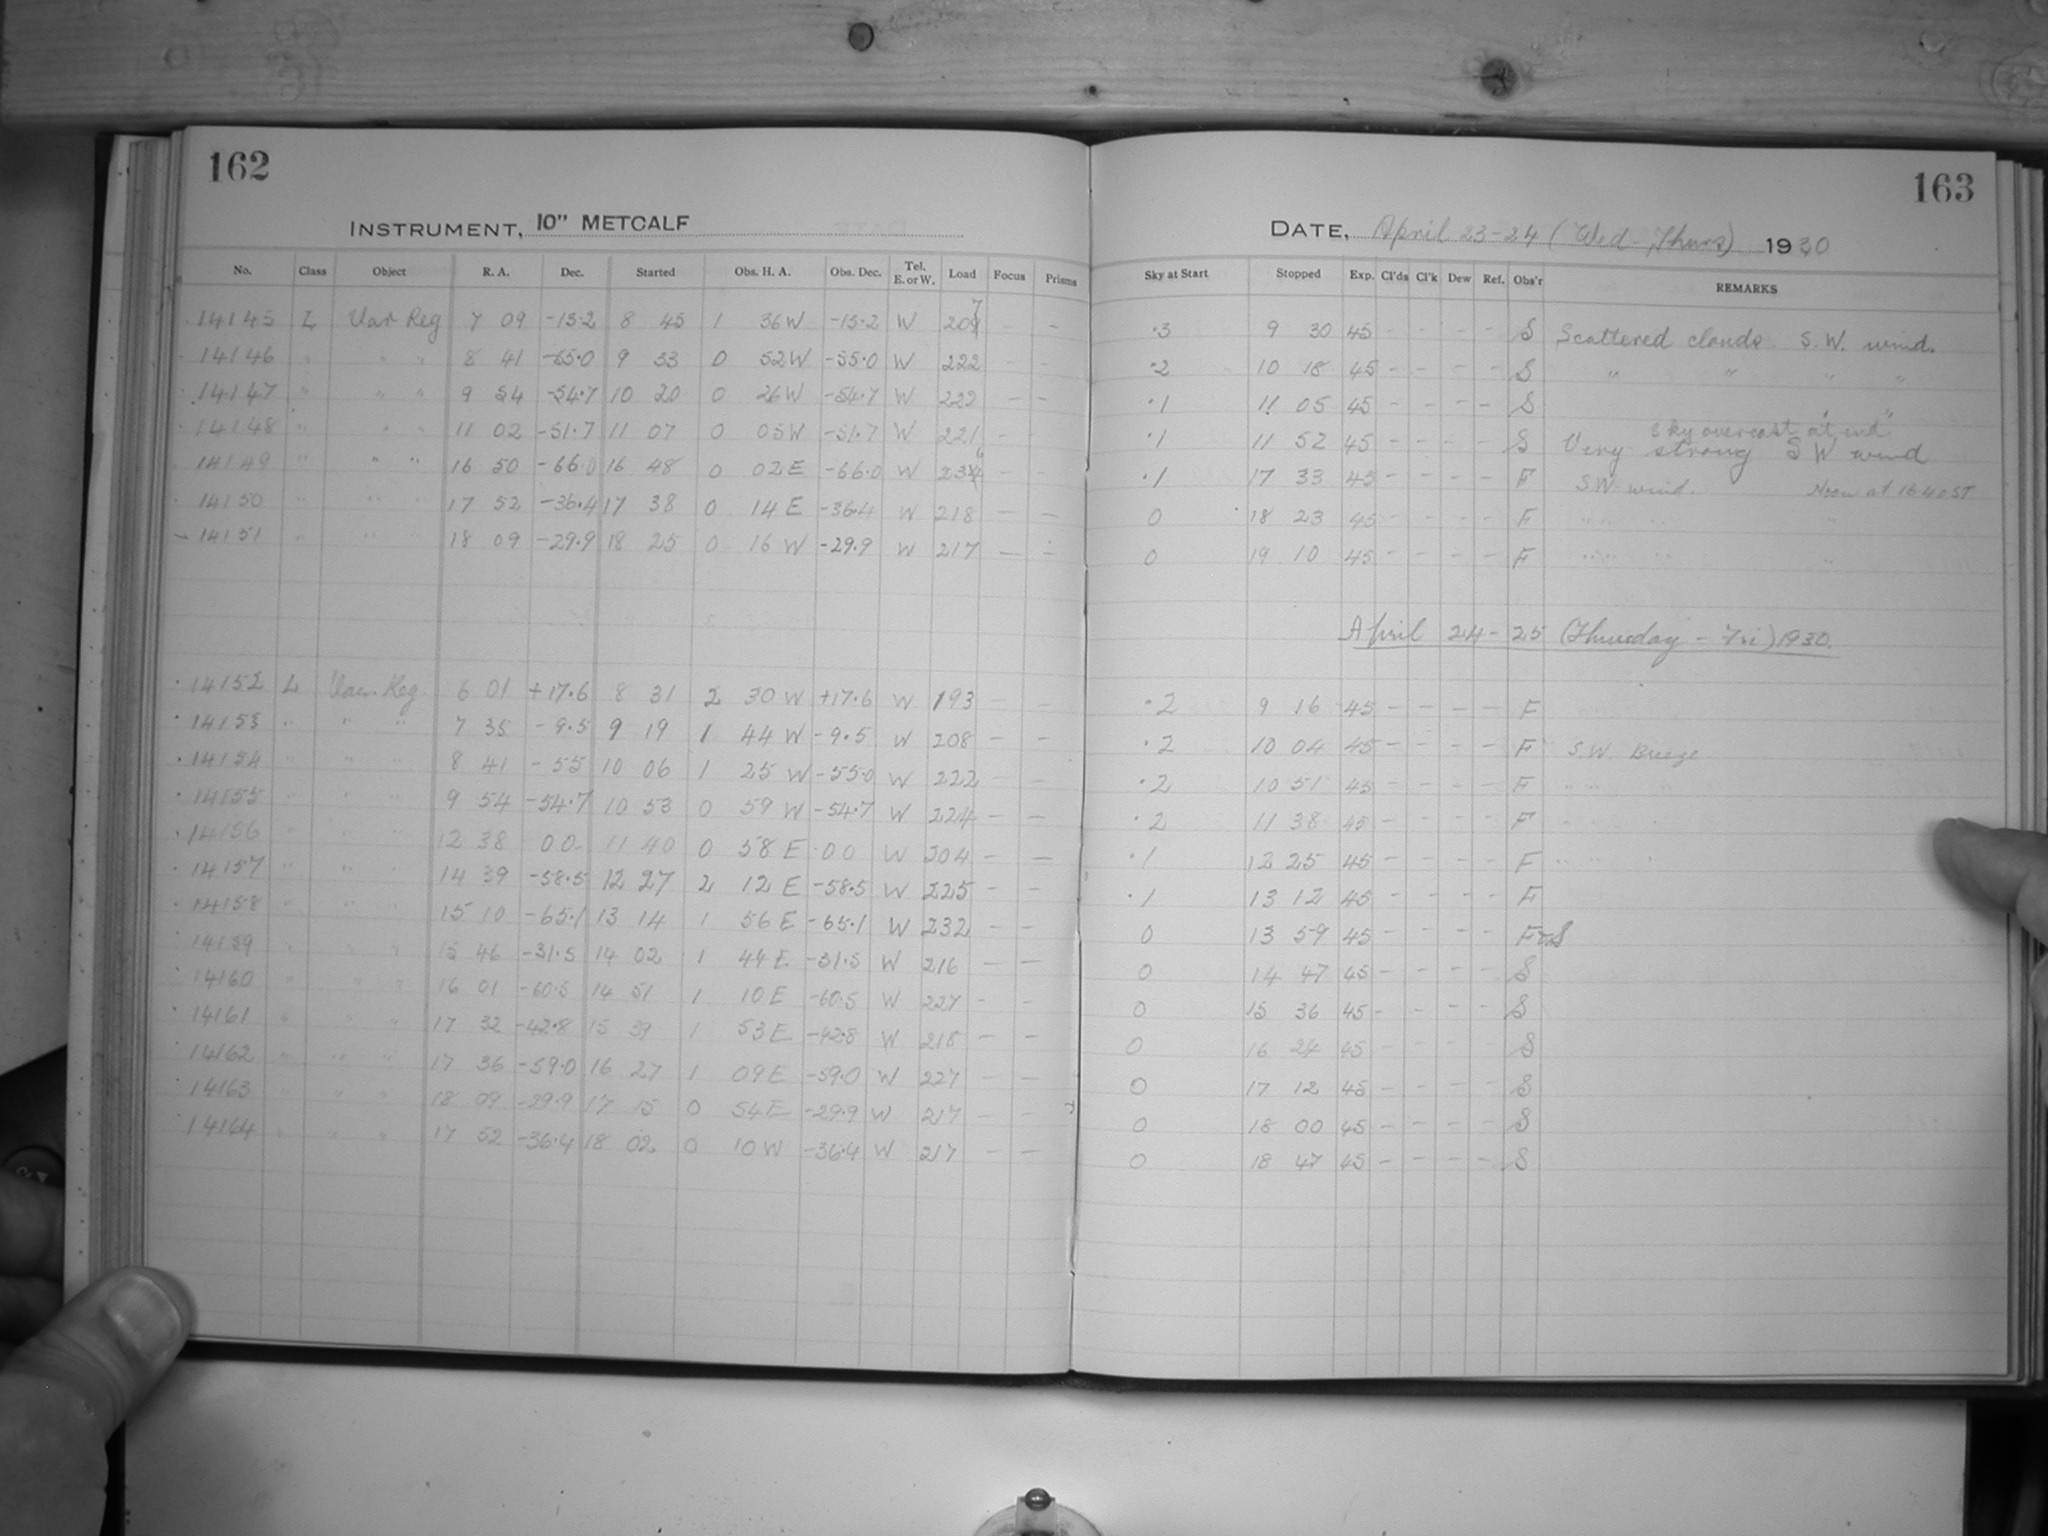 162
INSTRUMENT, 10" METCALF
No. Class Object R. A. Dec. Started Obs. H. A. Obs. Dec. Tel. E. or W. Load Focus Prisms
14145 L Var Reg 7 09 -15.2 8 45 1 36 W -15.2 W 207 - -
14146 " " " 8 41 -55.0 9 33 0 52 W -55.0 W 222 - -
14147 " " " 9 54 -54.7 10 20 0 26 W -54.7 W 222 - -
14148 " " " 11 02 -51.7 11 07 0 05 W -51.7 W 221 - -
14149 " " " 16 50 -66.0 16 48 0 02 E -66.0 W 236 - -
14150 " " " 17 52 -36.4 17 38 0 14 E -36.4 W 218 - -
14151 " " " 18 09 -29.9 18 25 0 16 W -29.9 W 217 - -
14152 L Var. Reg 6 01 +17.6 8 31 2 30 W +17.6 W 193 - -
14153 " " " 7 35 -9.5 9 19 1 44 W -9.5 W 208 - -
14154 " " " 8 41 -55 10 06 1 25 W -55.0 W 222 - -
14155 " " " 9 54 -54.7 10 53 0 59 W -54.7 W 224 - -
14156 " " " 12 38 00 11 40 0 58 E 00 W 204 - -
14157 " " " 14 39 -58.5 12 27 2 12 E -58.5 W 225 - -
14158 " " " 15 10 -65.1 13 14 1 56 E -65.1 W 232 - -
14159 " " " 15 46 -31.5 14 02 1 44 E -31.5 W 216 - -
14160 " " " 16 01 -60.5 14 51 1 10 E -60.5 W 227 - -
14161 " " " 17 32 -42.8 15 39 1 53 E -42.8 W 218 - -
14162 " " " 17 36 -59.0 16 27 1 09 E -59.0 W 227 - -
14163 " " " 18 09 -29.9 17 15 0 54 E -29.9 W 217 - -
14164 " " " 17 52 -36.4 18 02 0 10 W -36.4 W 217 - -
163
DATE, April 23-24 (Wed - Thurs) 1930
Sky at Start Stopped Exp. Cl'ds Cl'k Dew Ref. Obs'r REMARKS
.3 9 30 45 - - - - S Scattered clouds. S.W. wind.
.2 10 18 45 - - - - S " " " "
.1 11 05 45 - - - - S " "
Sky overcast at end
.1 11 52 45 - - - - S Very strong S W wind
.1 17 33 45 - - - - F S.W. wind. Moon at 16 40 ST
0 18 23 45 - - - - F " " " "
0 19 10 45 - - - - F " " " "
April 24-25 (Thursday - Fri) 1930.
.2 9 16 45 - - - - F
.2 10 04 45 - - - - F S.W. Breeze
.2 10 51 45 - - - - F " " "
.2 11 38 45 - - - - F
.1 12 25 45 - - - - F " " "
.1 13 12 45 - - - - F
0 13 59 45 - - - - F & S
0 14 47 45 - - - - S
0 15 36 45 - - - - S
0 16 24 45 - - - - S
0 17 12 45 - - - - S
0 18 00 45 - - - - S
0 18 47 45 - - - - S